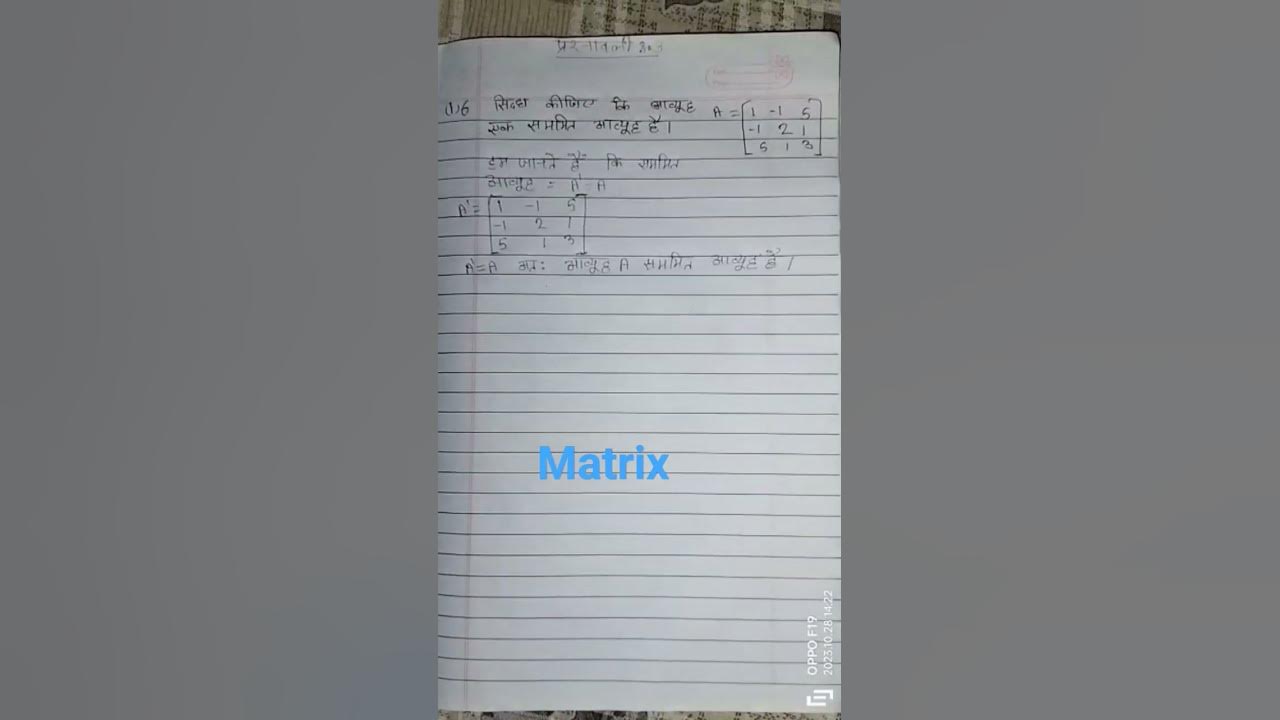 प्रश्नावली 3.3
(1)6 सिद्ध कीजिए कि आव्यूह A = [1 -1 5
एक सममित आव्यूह है। -1 2 1
5 1 3]
हम जानते हैं कि सममित
आव्यूह = A' = A
A' = [1 -1 5
-1 2 1
5 1 3]
A'=A अतः आव्यूह A सममित आव्यूह है।
Matrix
OPPO F19
2023.10.28 14:22